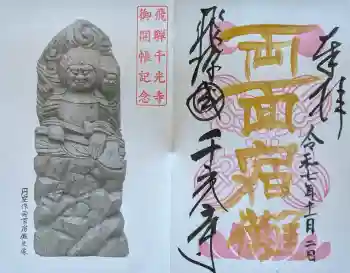 奉拝
令和七年十一月二日
両面宿儺
飛騨國千光寺
飛騨千光寺
御開帳記念
円空作両面宿儺之像